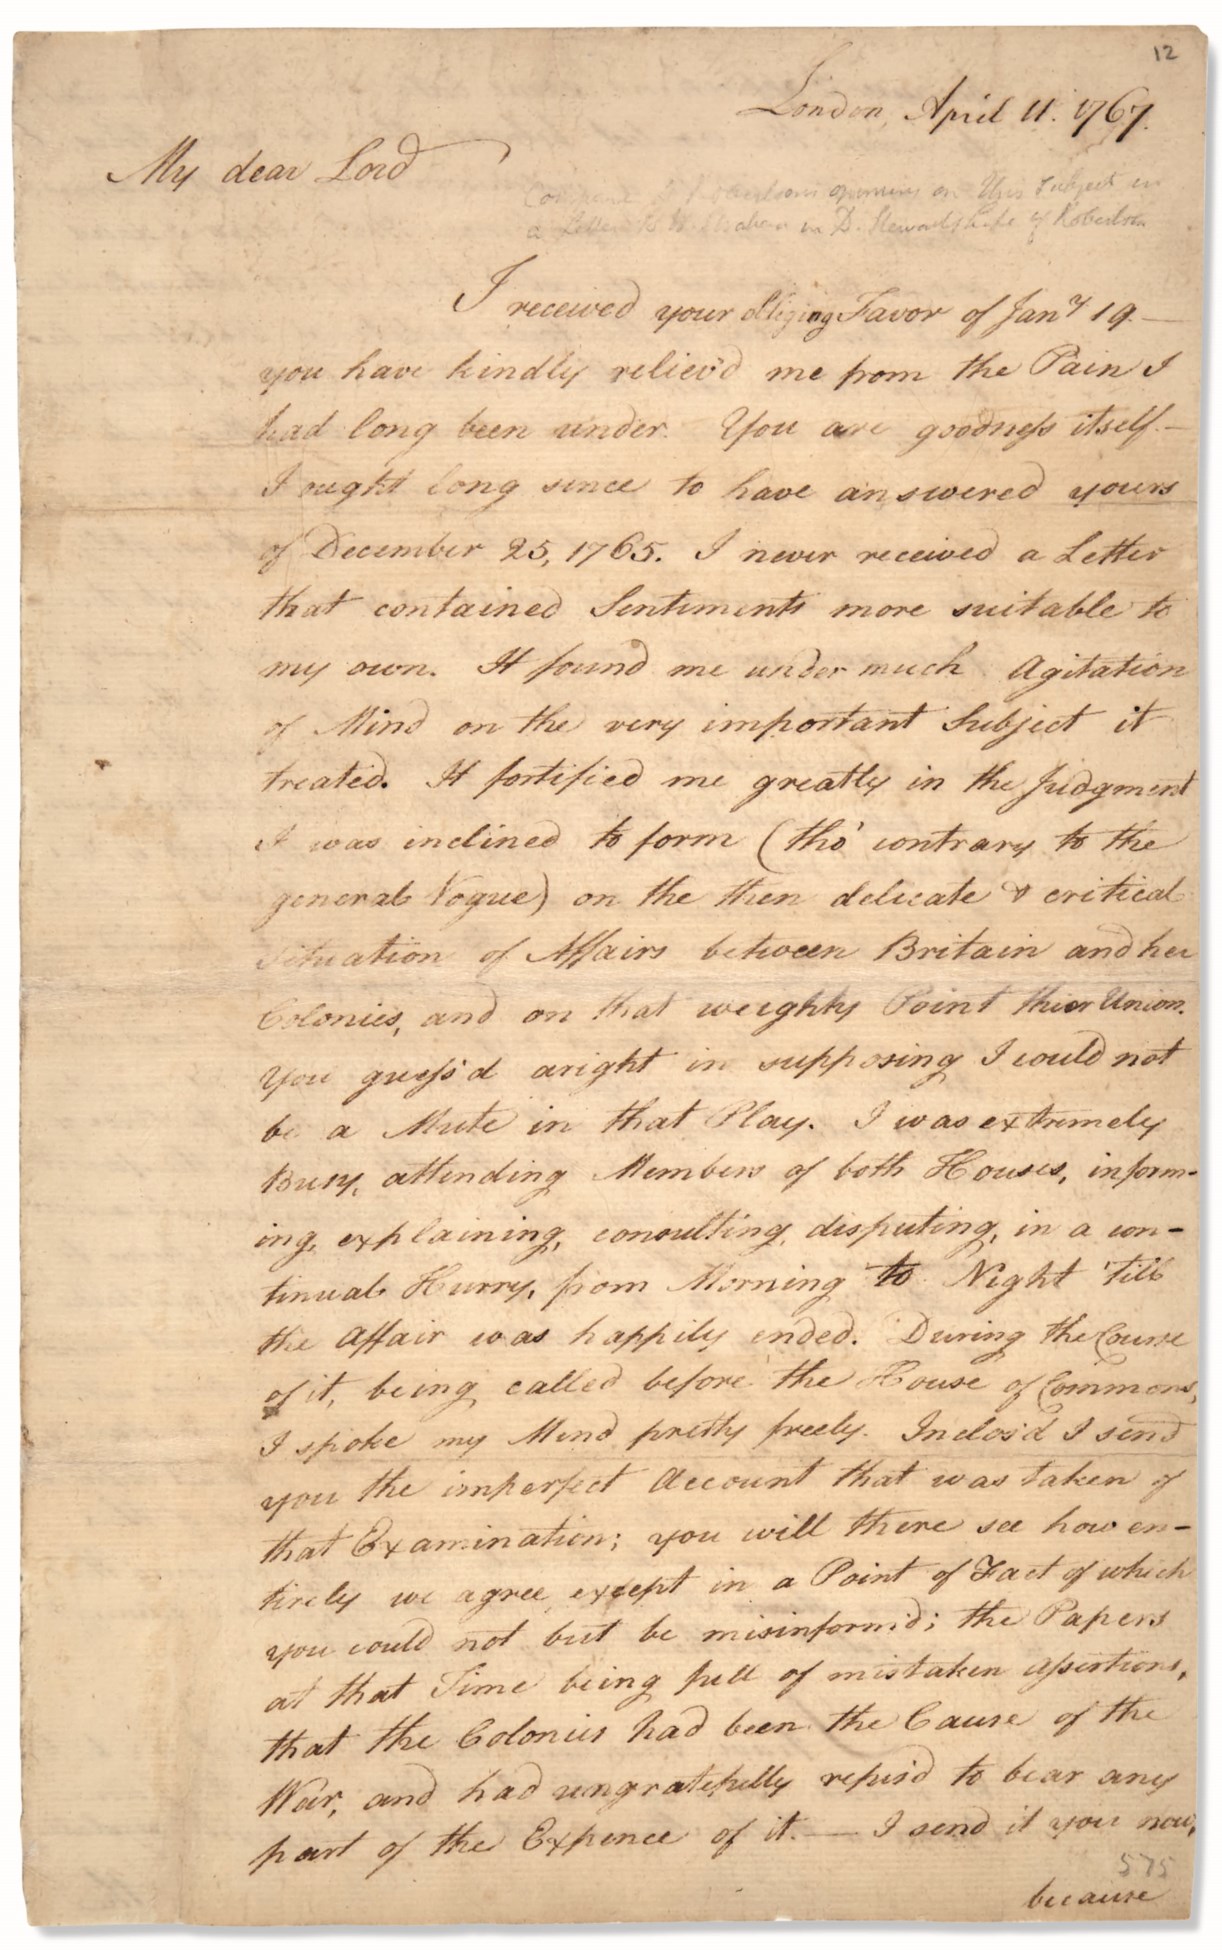 12
London, April 11. 1767.
My dear Lord
Compare Dr Robertson's opinions on this subject in
a Letter to W. Strahan in D. Stewart's Life of Robertson
I received your obliging Favor of Jany 19 —
you have kindly reliev'd me from the Pain I
had long been under. You are goodness itself. —
I ought long since to have answered yours
of December 25, 1765. I never received a Letter
that contained Sentiments more suitable to
my own. It found me under much Agitation
of Mind on the very important Subject it
treated. It fortified me greatly in the Judgment
I was inclined to form (tho' contrary to the
general Vogue) on the then delicate & critical
Situation of Affairs between Britain and her
Colonies, and on that weighty Point their Union.
You guess'd aright in supposing I could not
be a Mute in that Play. I was extremely
Busy, attending Members of both Houses, inform-
ing, explaining, consulting, disputing, in a con-
tinual Hurry, from Morning to Night 'till
the Affair was happily ended. During the Course
of it, being called before the House of Commons,
I spoke my Mind pretty freely. Inclos'd I send
you the imperfect Account that was taken of
that Examination; you will there see how en-
tirely we agree, except in a Point of Fact of which
you could not but be misinform'd; the Papers
at that Time being full of mistaken Assertions,
that the Colonies had been the Cause of the
War, and had ungratefully refus'd to bear any
part of the Expence of it. — I send it you now,
575
because